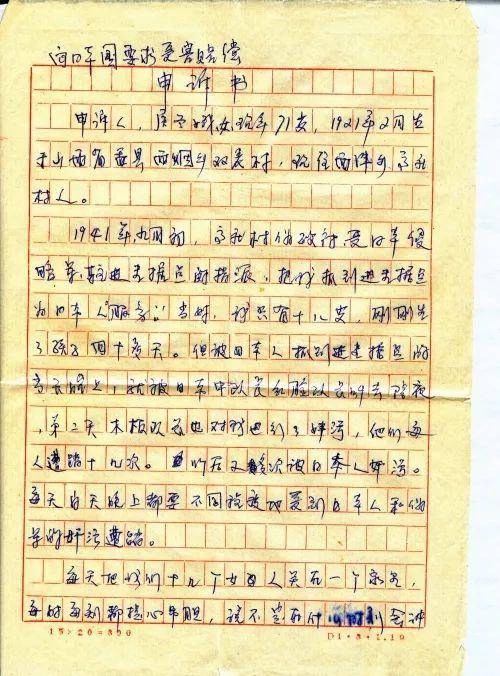 向日本国要求受害赔偿
申诉书
申诉人，女现年71岁，1921年2月生
于山西省盂县西烟乡双表村，现住西潘乡
村人。
1941年九月初，村伪政村受日本侵
略军进圭据点的指派，把我抓到进圭据点
为日本人"服务"；当时，我只有十八岁，刚刚生
了孩子四十多天。但被日军人抓到进圭据点的
当天晚上，就被日军中队长和
，第二天木板队长也对我进行了奸污，他们每
人遭踏十几次。的后又多次被日本人奸污。
每天白天晚上都要不同程度地受到日本人和伪
军的奸污遭踏。
每天把我们十几个女人关在一个，
每时每刻都提心吊胆，说不定在什时刻会
15×20=300